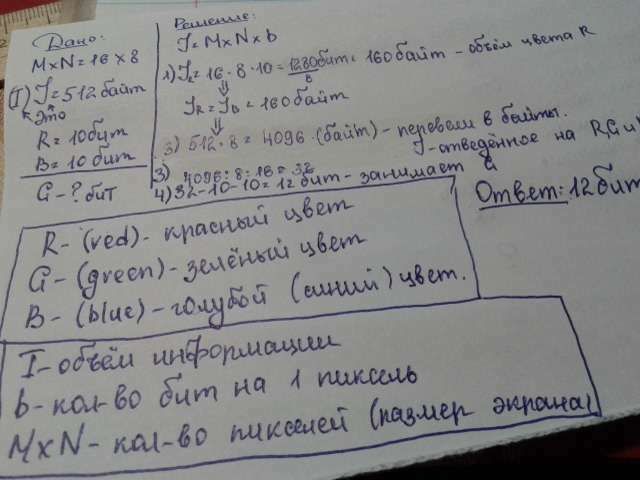 Дано:
M×N=16×8
(I) J=512байт
это
R=10бит
B=10 бит
G-? бит
Решение:
J=M×N×b
1) J =16·8·10=1280бит=160байт - объём цвета R
8
J R = J b = 160байт
3) 512·8=4096 (байт) - перевели в байты.
J-отведённое на RG и
3) 4096:8:16=32
4) 32-10-10=12бит - занимает G
Ответ: 12бит
R-(red)-красный цвет
G-(green)-зелёный цвет
B-(blue)-голубой (синий) цвет.
I-объём информации
b-кол-во бит на 1 пиксель
M×N-кол-во пикселей (размер экрана)